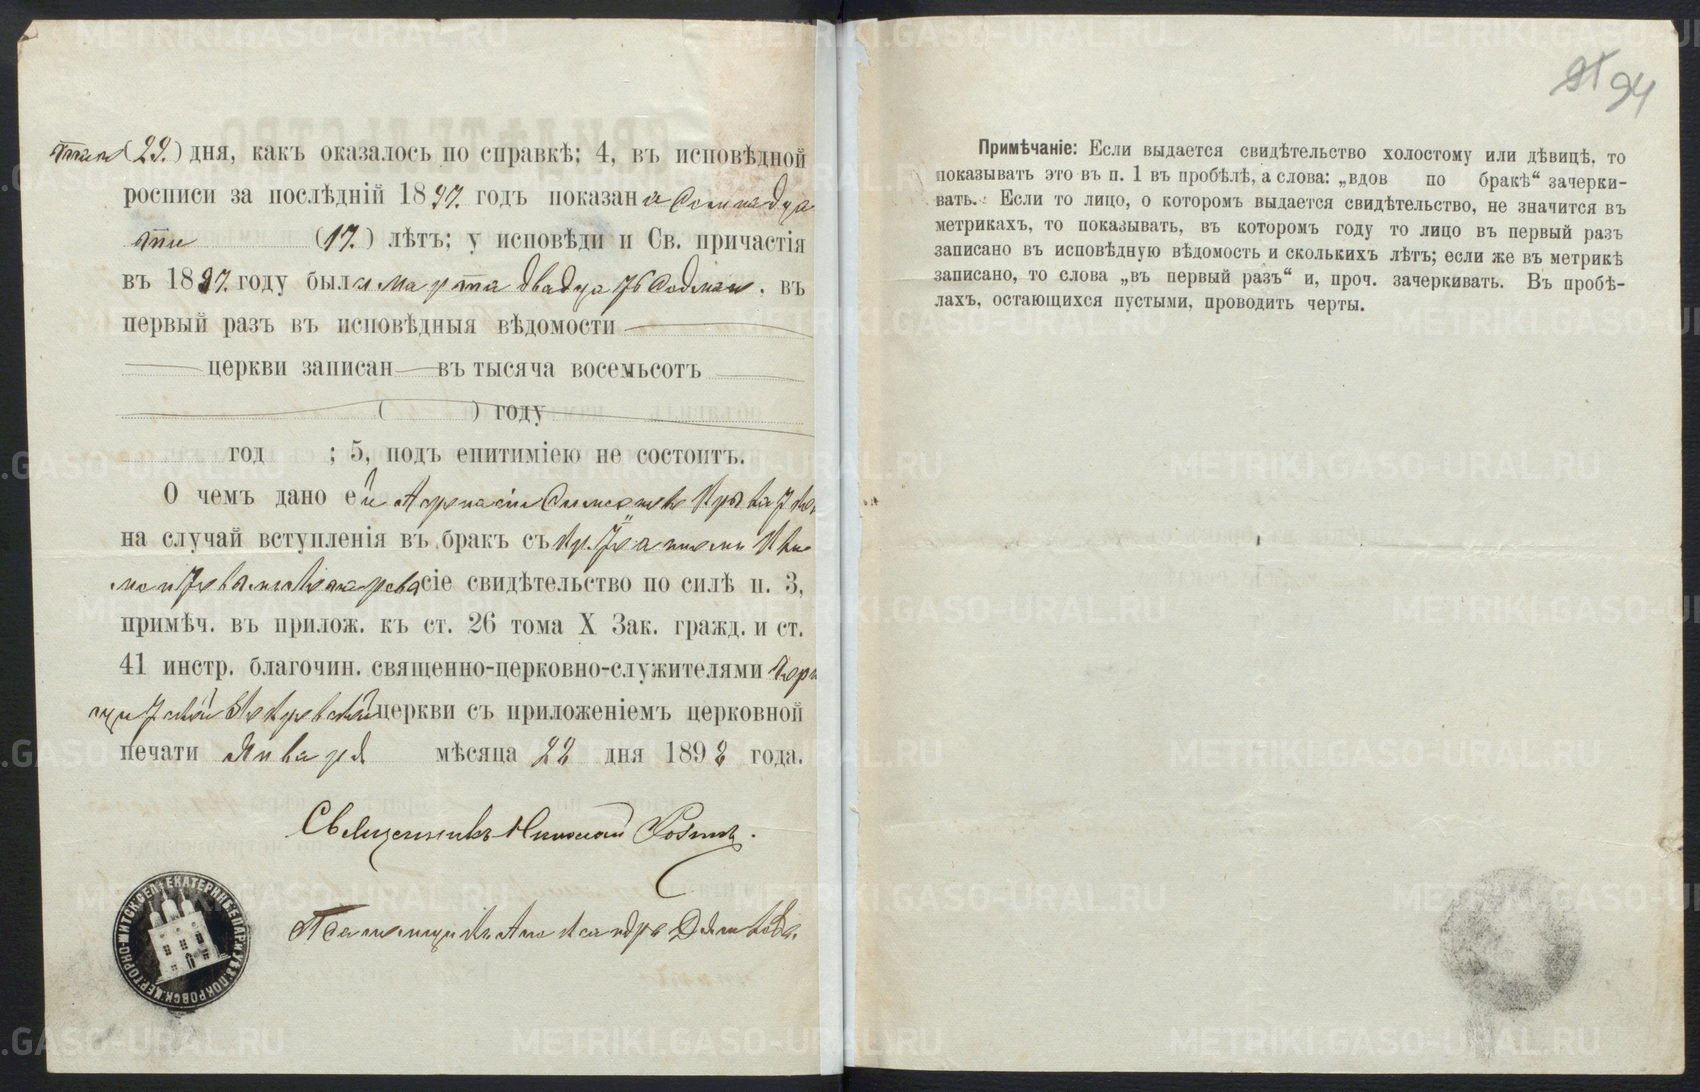 (29.) дня, какъ оказалось по справкѣ; 4, въ исповѣдной
росписи за послѣдній 1897. годъ показана Семнадца
ти (17.) лѣтъ; у исповѣди и Св. причастія
въ 1897. году была марта двадцать седмаго. въ
первый разъ въ исповѣдныя вѣдомости
церкви записан въ тысяча восемьсотъ
( ) году
год ; 5, подъ епитиміею не состоитъ.
О чемъ дано ей
на случай вступленія въ бракъ съ
сіе свидѣтельство по силѣ п. 3,
примѣч. въ прилож. къ ст. 26 тома X Зак. гражд. и ст.
41 инстр. благочин. священно-церковно-служителями
Покровской церкви съ приложеніемъ церковной
печати Января мѣсяца 22 дня 1898 года.
Священникъ Николай
Псаломщикъ Александръ
94
Примѣчаніе: Если выдается свидѣтельство холостому или дѣвицѣ, то
показывать это въ п. 1 въ пробѣлѣ, а слова: „вдов по бракѣ“ зачерки-
вать. Если то лицо, о которомъ выдается свидѣтельство, не значится въ
метрикахъ, то показывать, въ которомъ году то лицо въ первый разъ
записано въ исповѣдную вѣдомость и сколькихъ лѣтъ; если же въ метрикѣ
записано, то слова „въ первый разъ“ и, проч. зачеркивать. Въ пробѣ-
лахъ, остающихся пустыми, проводить черты.
METRIKI.GASO-URAL.RU